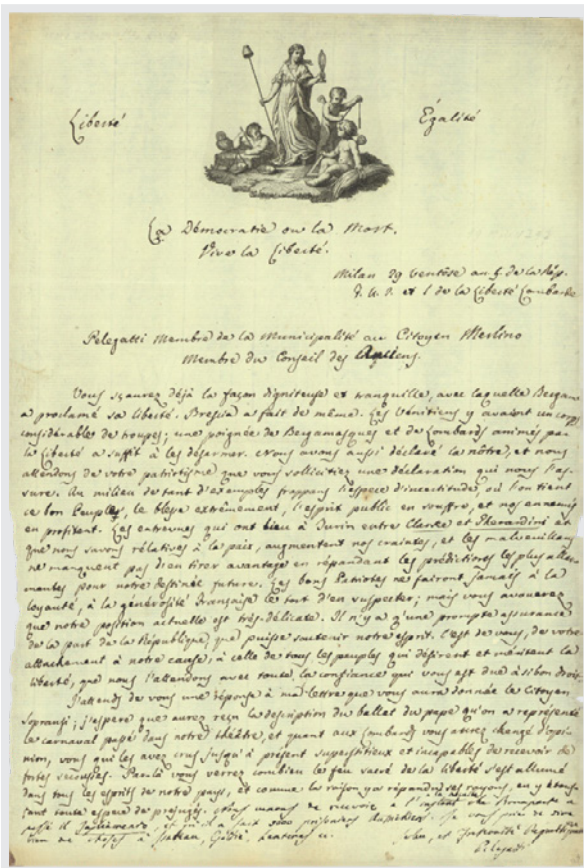 Liberté
Égalité
La Démocratie ou la Mort.
Vive la Liberté.
Milan 29 ventôse an 5. de la Rép.
F. U. I. et 1 de la Liberté Lombarde
Pelegatti Membre de la Municipalité au Citoyen Merlino
Membre du Conseil des Anciens.
Vous sçaurez déjà la façon digniteuse et tranquille, avec laquelle Bergam
a proclamé sa liberté. Brescia a fait de même. Les Vénitiens y avaient un corps
considérable de troupes; une poignée de Bergamasques et de Lombards animés par
la liberté a suffit à les désarmer. Nous avons aussi déclaré la nôtre, et nous
attendons de votre patriotisme que vous sollicitiez une déclaration qui nous l'as-
sure. Au milieu de tant d'exemples frappans l'espece d'incertitude, où l'on tient
ce bon Peuple, le blesse extrêmement, l'esprit public en souffre, et nos ennemis
en profitent. Les entrevues qui ont lieu à Turin entre Clarke et Gherardini et
que nous savons rélatives à la paix, augmentent nos craintes, et les malveillans
ne manquent pas d'en tirer avantage en répandant les prédictions les plus allar-
mantes pour notre destinée future. Les bons Patriotes ne fairont jamais à la
loyauté, à la générosité française le tort d'en suspecter; mais vous avouerez
que notre position actuelle est très-délicate. Il n'y a q'une prompte assurance
de la part de la République, que puisse soutenir notre esprit. C'est de vous, de votre
attachement à notre cause, à celle de tous les peuples qui désirent et méritent la
liberté, que nous l'attendons avec toute la confiance qui vous est due à si bon droit.
J'attends de vous une réponse à ma lettre que vous aura donnée le Citoyen
Sopransi; j'espere que aurez reçu la description du ballet du pape qu'on a représenté
le carnaval passé dans notre théâtre, et quant aux Lombards vous aurez changé d'opi-
nion, vous qui les avez crus jusqu'à présent superstitieux et incapables de recevoir de
fortes secousses. Par là vous verrez combien le feu sacré de la liberté s'est allumé
dans tous les esprits de notre pays, et comme la raison y a répandu ses rayons, en y étouf-
fant toute espece de préjugés. Nous venons de recevoir à l'instant que Bonaparte a
passé il Tagliamento, et qu'il a fait prisonniers. Je vous prie de
bien de choses à
Salut, et Fraternité
Pelegatti